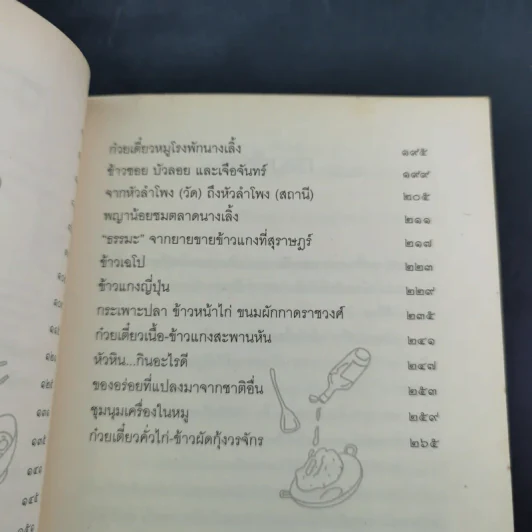 ก๋วยเตี๋ยวหมูโรงพักนางเลิ้ง ๑๙๕
ข้าวซอย บัวลอย และเจือจันทร์ ๑๙๙
จากหัวลำโพง (วัด) ถึงหัวลำโพง (สถานี) ๒๐๕
พญาน้อยชมตลาดนางเลิ้ง ๒๑๑
"ธรรมะ" จากยายขายข้าวแกงที่สุราษฎร์ ๒๑๗
ข้าวเฉโป ๒๒๓
ข้าวแกงญี่ปุ่น ๒๒๙
กระเพาะปลา ข้าวหน้าไก่ ขนมผักกาดราชวงศ์ ๒๓๕
ก๋วยเตี๋ยวเนื้อ-ข้าวแกงสะพานหัน ๒๔๑
หัวหิน...กินอะไรดี ๒๔๗
ของอร่อยที่แปลงมาจากชาติอื่น ๒๕๓
ชุมนุมเครื่องในหมู ๒๕๙
ก๋วยเตี๋ยวคั่วไก่-ข้าวผัดกุ้งวรจักร ๒๖๕